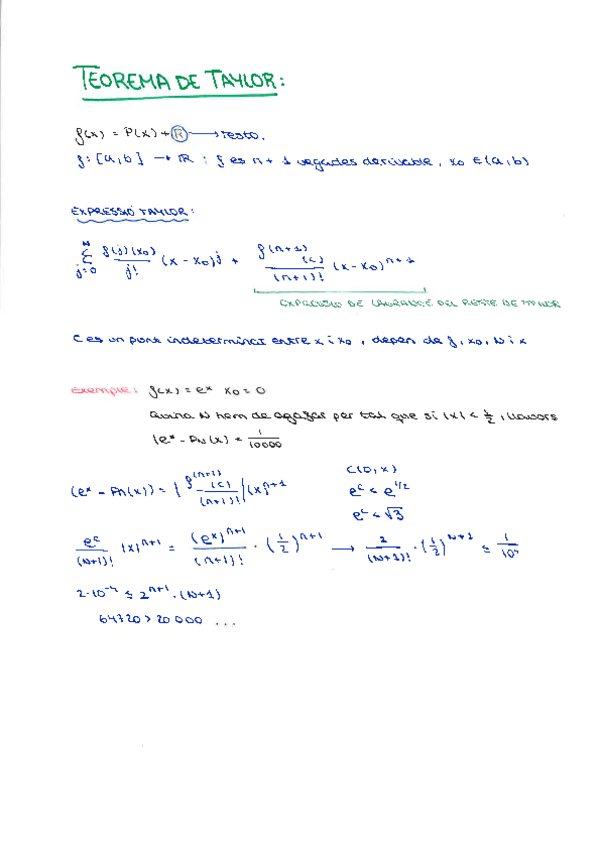 TEOREMA DE TAYLOR:
f(x) = P(x) + R → resto.
f: [a,b] → R : f es n + 1 vegades derivable, x0 ∈ (a,b)
EXPRESSIÓ TAYLOR:
N Σ j=0 f(j)(x0)/j! (x - x0)^j + f(n+1)(c)/(n+1)! (x-x0)^n+1
EXPRESSIÓ DE LAGRANGE DEL RESTE DE TAYLOR
C es un punt indeterminat entre x i x0, depen de f, x0, N i x
Exemple: f(x) = e^x x0 = 0
Quina N hem de agafar per tal que si |x| < 1/2, llavors
|e^x - PN(x)| < 1/10000
(e^x - Pn(x)) = | f^(n+1)(c)/(n+1)! | |x|^n+1 C(0,x)
e^c < e^1/2
e^c < √3
e^c/(N+1)! |x|^n+1 = (e^x)^n+1/(n+1)! · (1/2)^n+1 → 2/(N+1)! · (1/2)^N+1 ≤
2·10^-4 ≤ 2^n+1 · (N+1)
64720 > 20000 ...